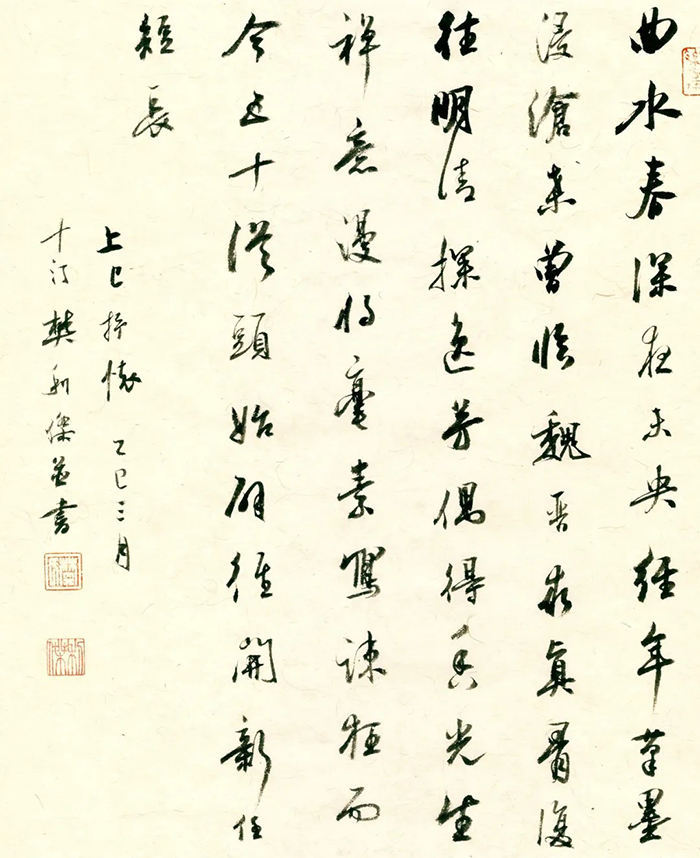 曲水春深夜未央經年筆墨
浸滄桑曾臨魏晉求真骨復
往明清探逸芳偶得光生
禪意漫將毫素寫疎狂而
今五十從頭始辟徑開新任
短長
上巳抒懷 乙巳三月
十汀樊利傑並書